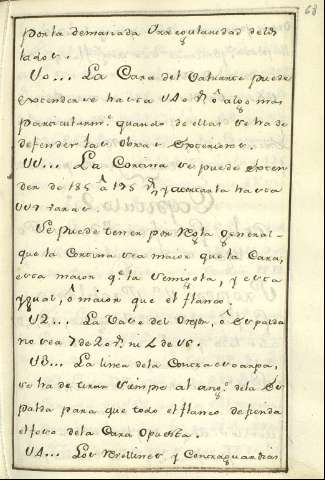 68
por la demasiada
lados.
La Cara del Valuarte puede
extenderse hasta 140 ô algo mas
particularmte. quando de ellas se ha de
defender las obras exteriores.
11... La Cortina se puede exten
der de 185 â 195 y acortarla hasta
Se puede tener por Regla General
que la Cortina sea maior que la Cara,
esta maior qe. la Semigola, y esta
ygual, ô maior que el flanco.
12... La Vase del Orejon, ô Espalda
no sea de ni
13... La linea dela Contraescarpa,
se ha de tirar siempre al angº. dela Es
palda para que todo el flanco defienda
el foso dela Cara Opuesta.
14... Los Rebellines y Contraguardias